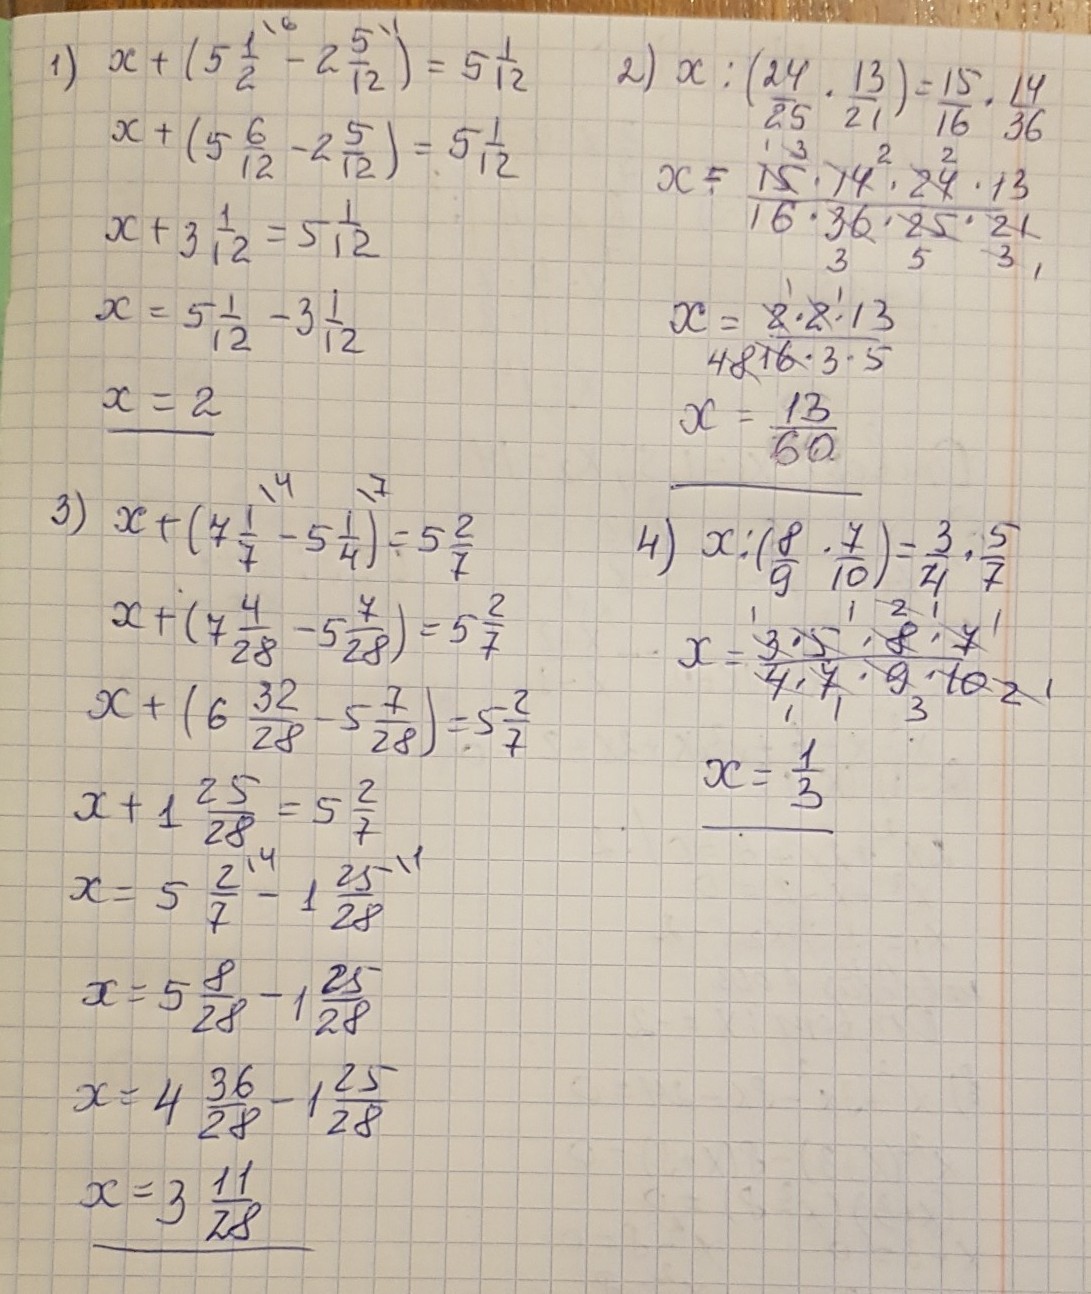 1) x + (5 1/2 \6 − 2 5/12 \1) = 5 1/12
x + (5 6/12 − 2 5/12) = 5 1/12
x + 3 1/12 = 5 1/12
x = 5 1/12 − 3 1/12
x = 2
2) x : (24/25 · 13/21) = 15/16 · 14/36
x = (15 · 14 · 24 · 13)/(16 · 36 · 25 · 21)
x = (2 · 2 · 13)/(16 · 3 · 5)
x = 13/60
3) x + (7 1/7 \4 − 5 1/4 \7) = 5 2/7
x + (7 4/28 − 5 7/28) = 5 2/7
x + (6 32/28 − 5 7/28) = 5 2/7
x + 1 25/28 = 5 2/7
x = 5 2/7 \4 − 1 25/28 \1
x = 5 8/28 − 1 25/28
x = 4 36/28 − 1 25/28
x = 3 11/28
4) x : (8/9 · 7/10) = 3/4 · 5/7
x = (3 · 5 · 8 · 7)/(4 · 7 · 9 · 10)
x = 1/3